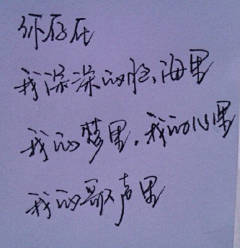 你存在
我深深的脑海里
我的梦里，我的心里
我的歌声里